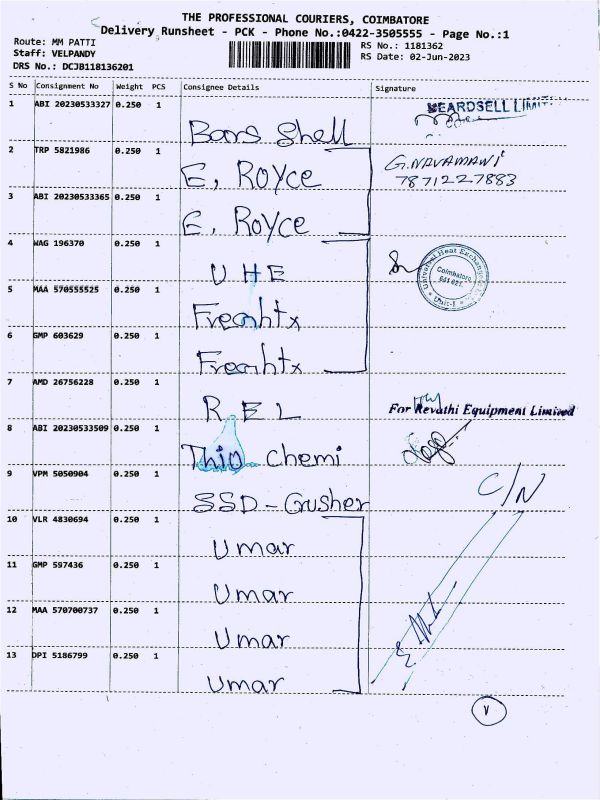 THE PROFESSIONAL COURIERS, COIMBATORE
Delivery Runsheet - PCK - Phone No.:0422-3505555 - Page No.:1
Route: MM PATTI
Staff: VELPANDY
DRS No.: DCJB118136201
RS No.: 1181362
RS Date: 02-Jun-2023
S No Consignment No Weight PCS Consignee Details Signature
1 ABI 20230533327 0.250 1 Bars Shell BEARDSELL LIMIT
2 TRP 5821986 0.250 1 E, Royce G.NAVAMANI
7871227883
3 ABI 20230533365 0.250 1 E, Royce
4 WAG 196370 0.250 1 UHE Universal Heat Exchangers Coimbatore 641 021. Unit-I
5 MAA 570555525 0.250 1 Freahtx
6 GMP 603629 0.250 1 Freahtx
7 AMD 26756228 0.250 1 REL For Revathi Equipment Limited
8 ABI 20230533509 0.250 1 Thio chemi
9 VPM 5050904 0.250 1 SSD-Grusher C/N
10 VLR 4830694 0.250 1 Umar
11 GMP 597436 0.250 1 Umar
12 MAA 570700737 0.250 1 Umar
13 DPI 5186799 0.250 1 Umar
V